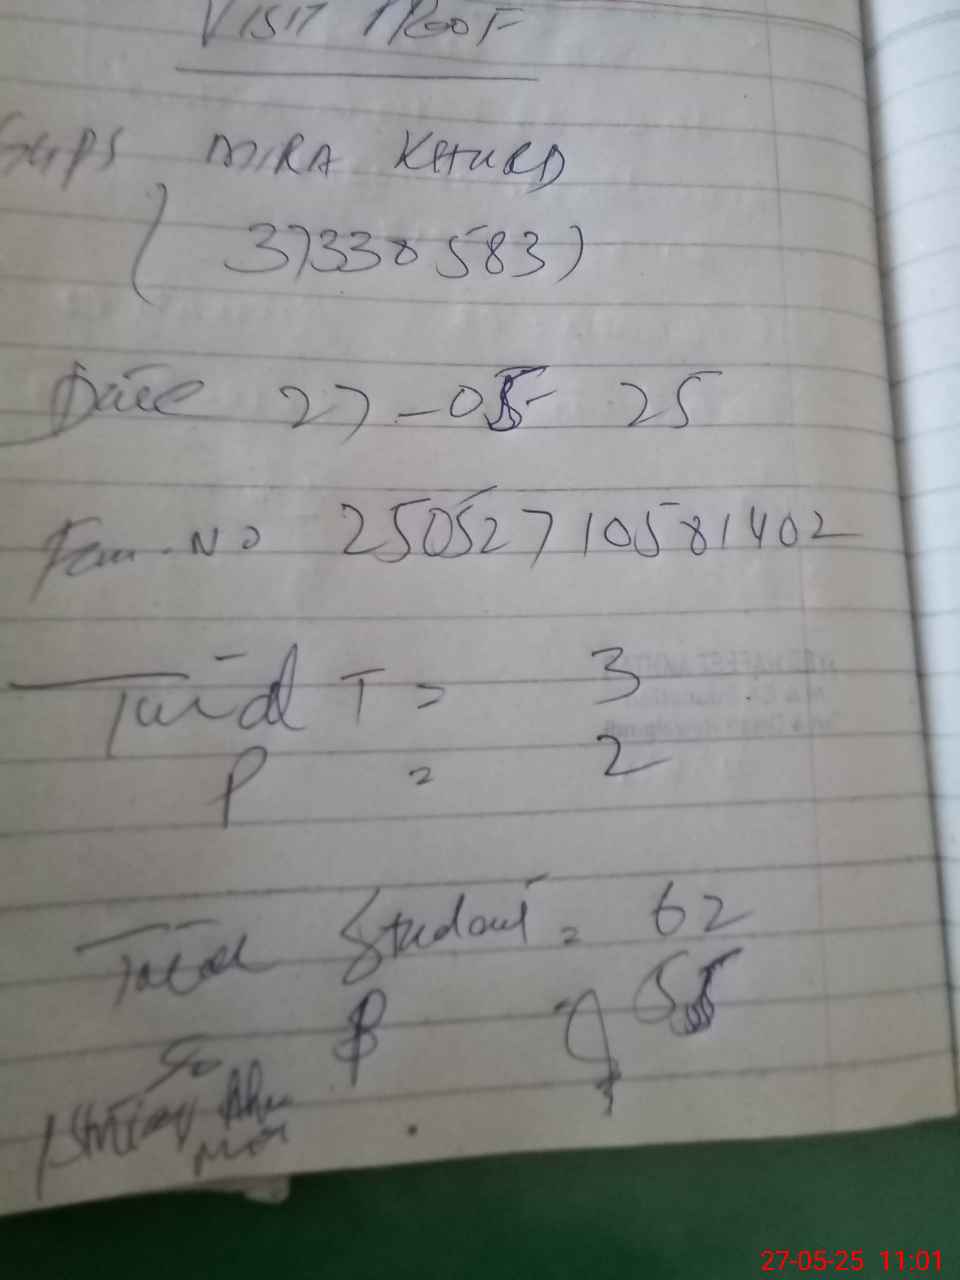 VISIT PROOF
GGPS MIRA KHURD
(37330583)
Date 27-05-25
No 25052710581402
T = 3
P = 2
Total Student = 62
P = 55
27-05-25 11:01